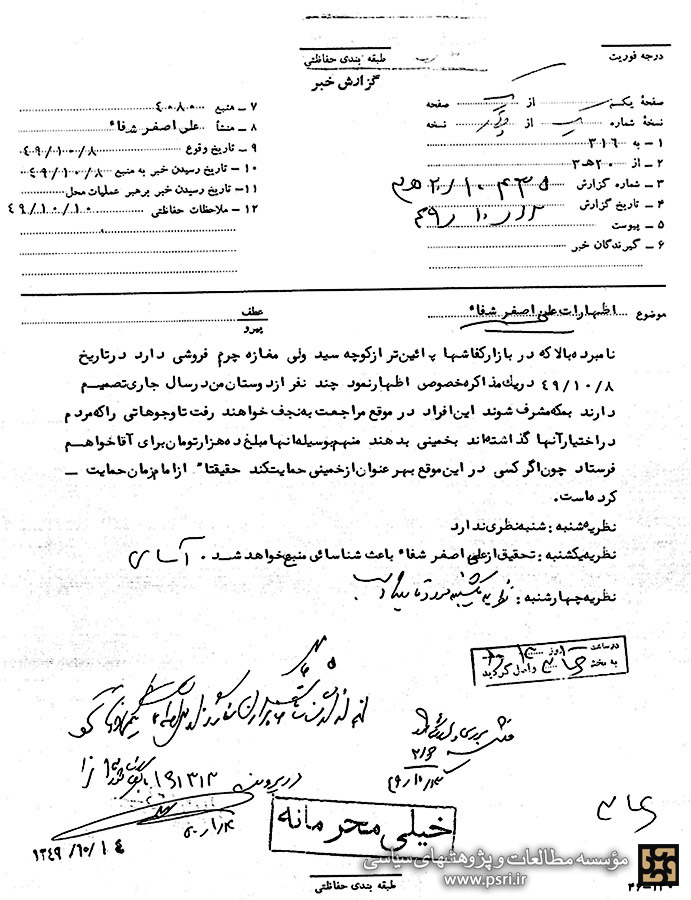 درجه فوریت
طبقه بندی حفاظتی
گزارش خبر
صفحهٔ یکم از یک صفحه
نسخهٔ شماره یک از نسخه
۱ - به ۳۱۶
۲ - از ۲۰ه۳
۳ - شماره گزارش ۲۰/۱۰۴۳۵ ه۳
۴ - تاریخ گزارش ۴۹/۱۰/۱۲
۵ - پیوست
۶ - گیرندگان خبر
۷ - منبع ۴۰۰۸۰
۸ - منشأ علی اصغر شفاء
۹ - تاریخ وقوع ۴۹/۱۰/۸
۱۰ - تاریخ رسیدن خبر به منبع ۴۹/۱۰/۸
۱۱ - تاریخ رسیدن خبر برهبر عملیات محل
۱۲ - ملاحظات حفاظتی ۴۹/۱۰/۱۰
موضوع اظهارات علی اصغر شفاء
عطف
پیرو
نامبرده بالا که در بازار کفاشها پائین تر از کوچه سید ولی مغازه چرم فروشی دارد در تاریخ
۴۹/۱۰/۸ در یک مذاکره خصوصی اظهار نمود چند نفر از دوستان من در سال جاری تصمیم
دارند بمکه مشرف شوند این افراد در موقع مراجعت به نجف خواهند رفت تا وجوهاتی را که مردم
در اختیار آنها گذاشته اند بخمینی بدهند منهم بوسیله انها مبلغ ده هزار تومان برای آقا خواهم
فرستاد چون اگر کسی در این موقع بهر عنوان از خمینی حمایت کند حقیقتا" از امام زمان حمایت -
کرده است.
نظریه شنبه : شنبه نظری ندارد
نظریه یکشنبه : تحقیق از علی اصغر شفاء باعث شناسائی منبع خواهد شد . آسای
نظریه چهارشنبه : نظریه یکشنبه مورد تایید است
در ساعت روز
به بخش واصل گردید
در پرونده ۱۹۱۳۱۳
۴۹/۱۰/۱۳
۱۳۴۹/۱۰/۱۴
خیلی محرمانه
طبقه بندی حفاظتی
مؤسسه مطالعات و پژوهشهای سیاسی
www.psri.ir